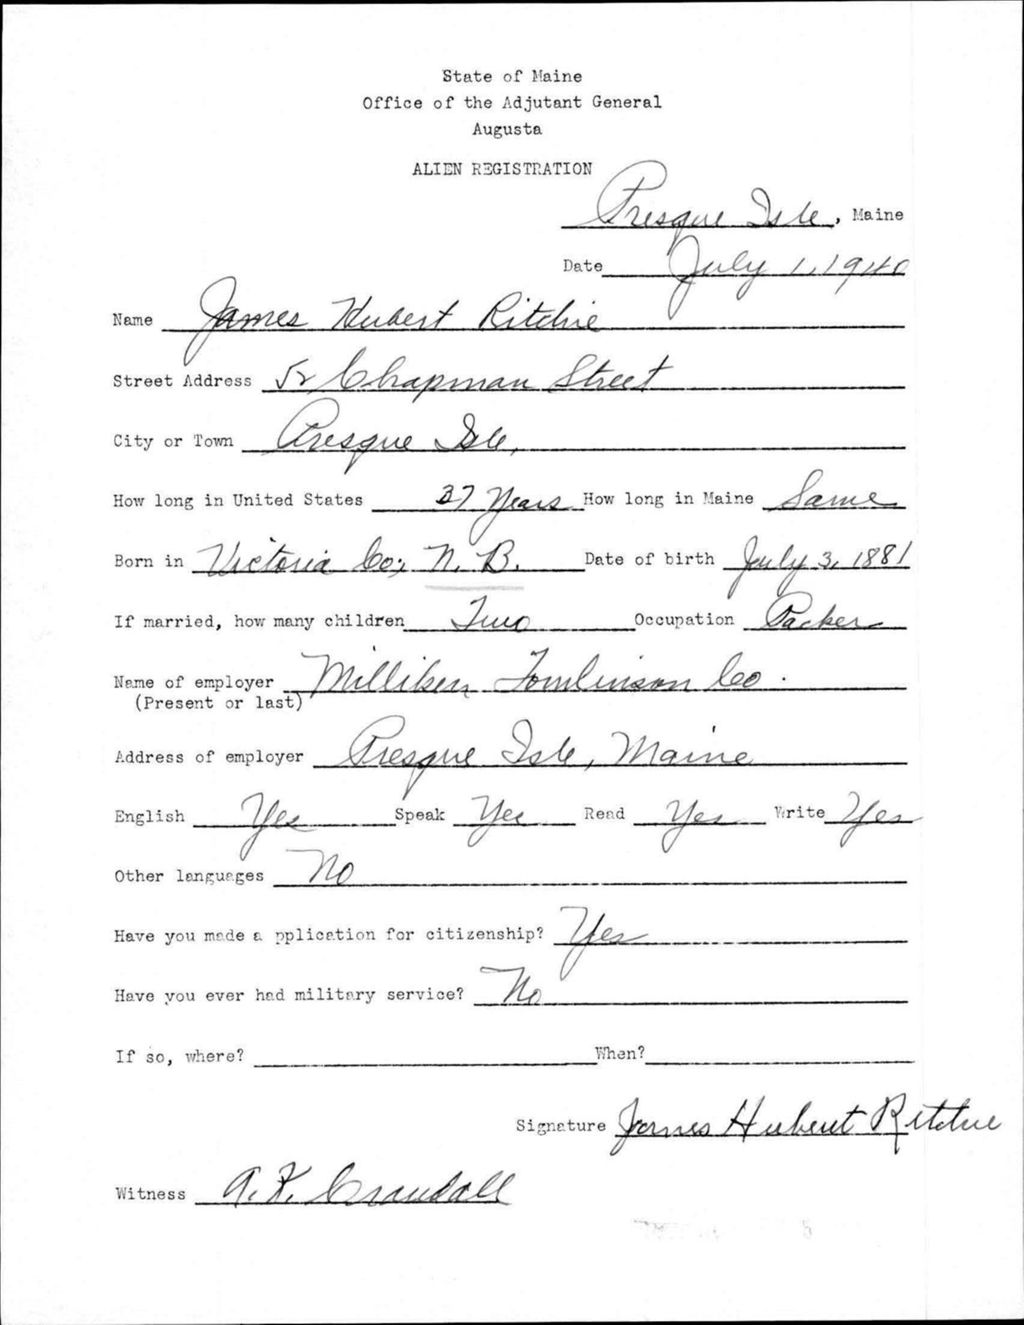 State of Maine
Office of the Adjutant General
Augusta
ALIEN REGISTRATION
Presque Isle, Maine
Date July 1, 1940
Name James Hubert Ritchie
Street Address 52 Chapman Street
City or Town Presque Isle,
How long in United States 37 Years How long in Maine Same
Born in Victoria Co; N. B. Date of birth July 3, 1881
If married, how many children Two Occupation Packer
Name of employer Milliken Tomlinson Co.
(Present or last)
Address of employer Presque Isle, Maine
English Yes Speak Yes Read Yes Write Yes
Other languages No
Have you made a pplication for citizenship? Yes
Have you ever had military service? No
If so, where? When?
Signature James Hubert Ritchie
Witness Crandall